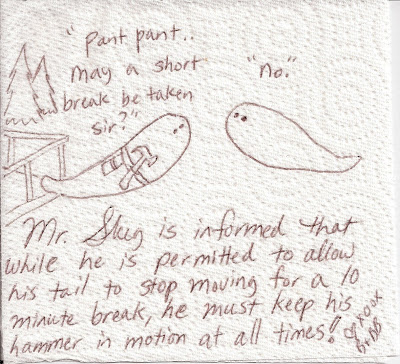 "Pant pant..
may a short
break be taken
sir?"
"no."
Mr. Slug is informed that
while he is permitted to allow
his tail to stop moving for a 10
minute break, he must keep his
hammer in motion at all times!
xoox